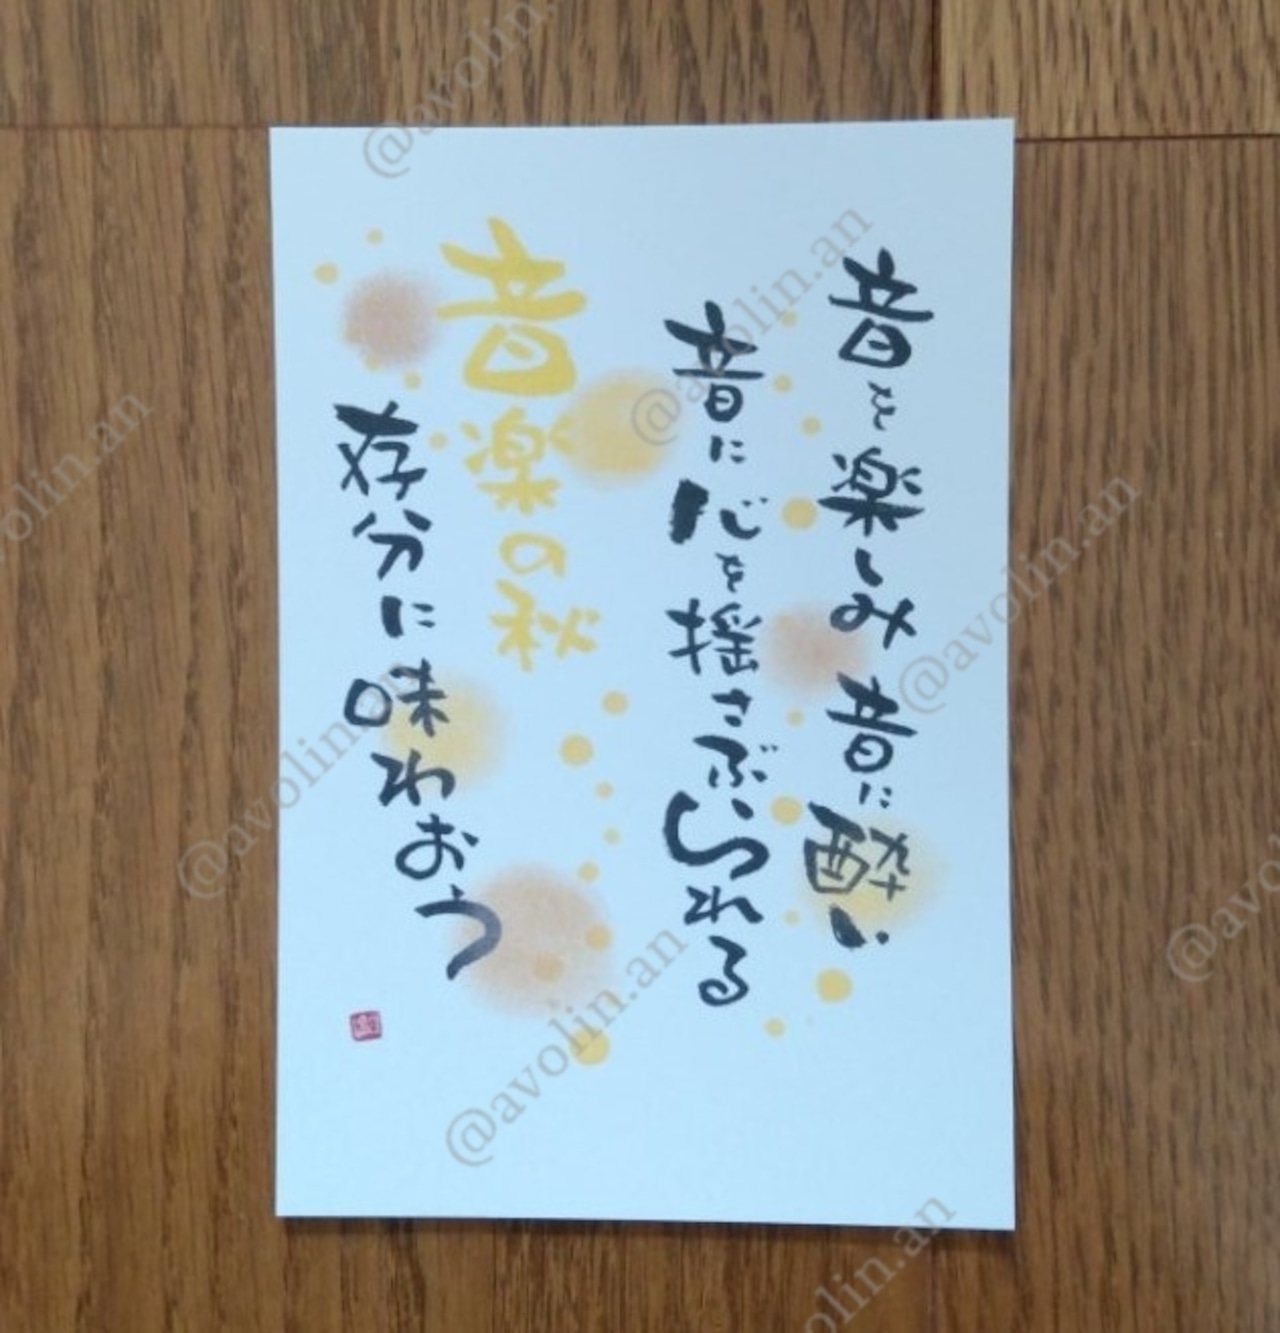 音を楽しみ 音に酔い
音に心を揺さぶられる
音楽の秋
存分に味わおう
@avolin.an
@avolin.an
@avolin.an
@avolin.an
@avolin.an
@avolin.an